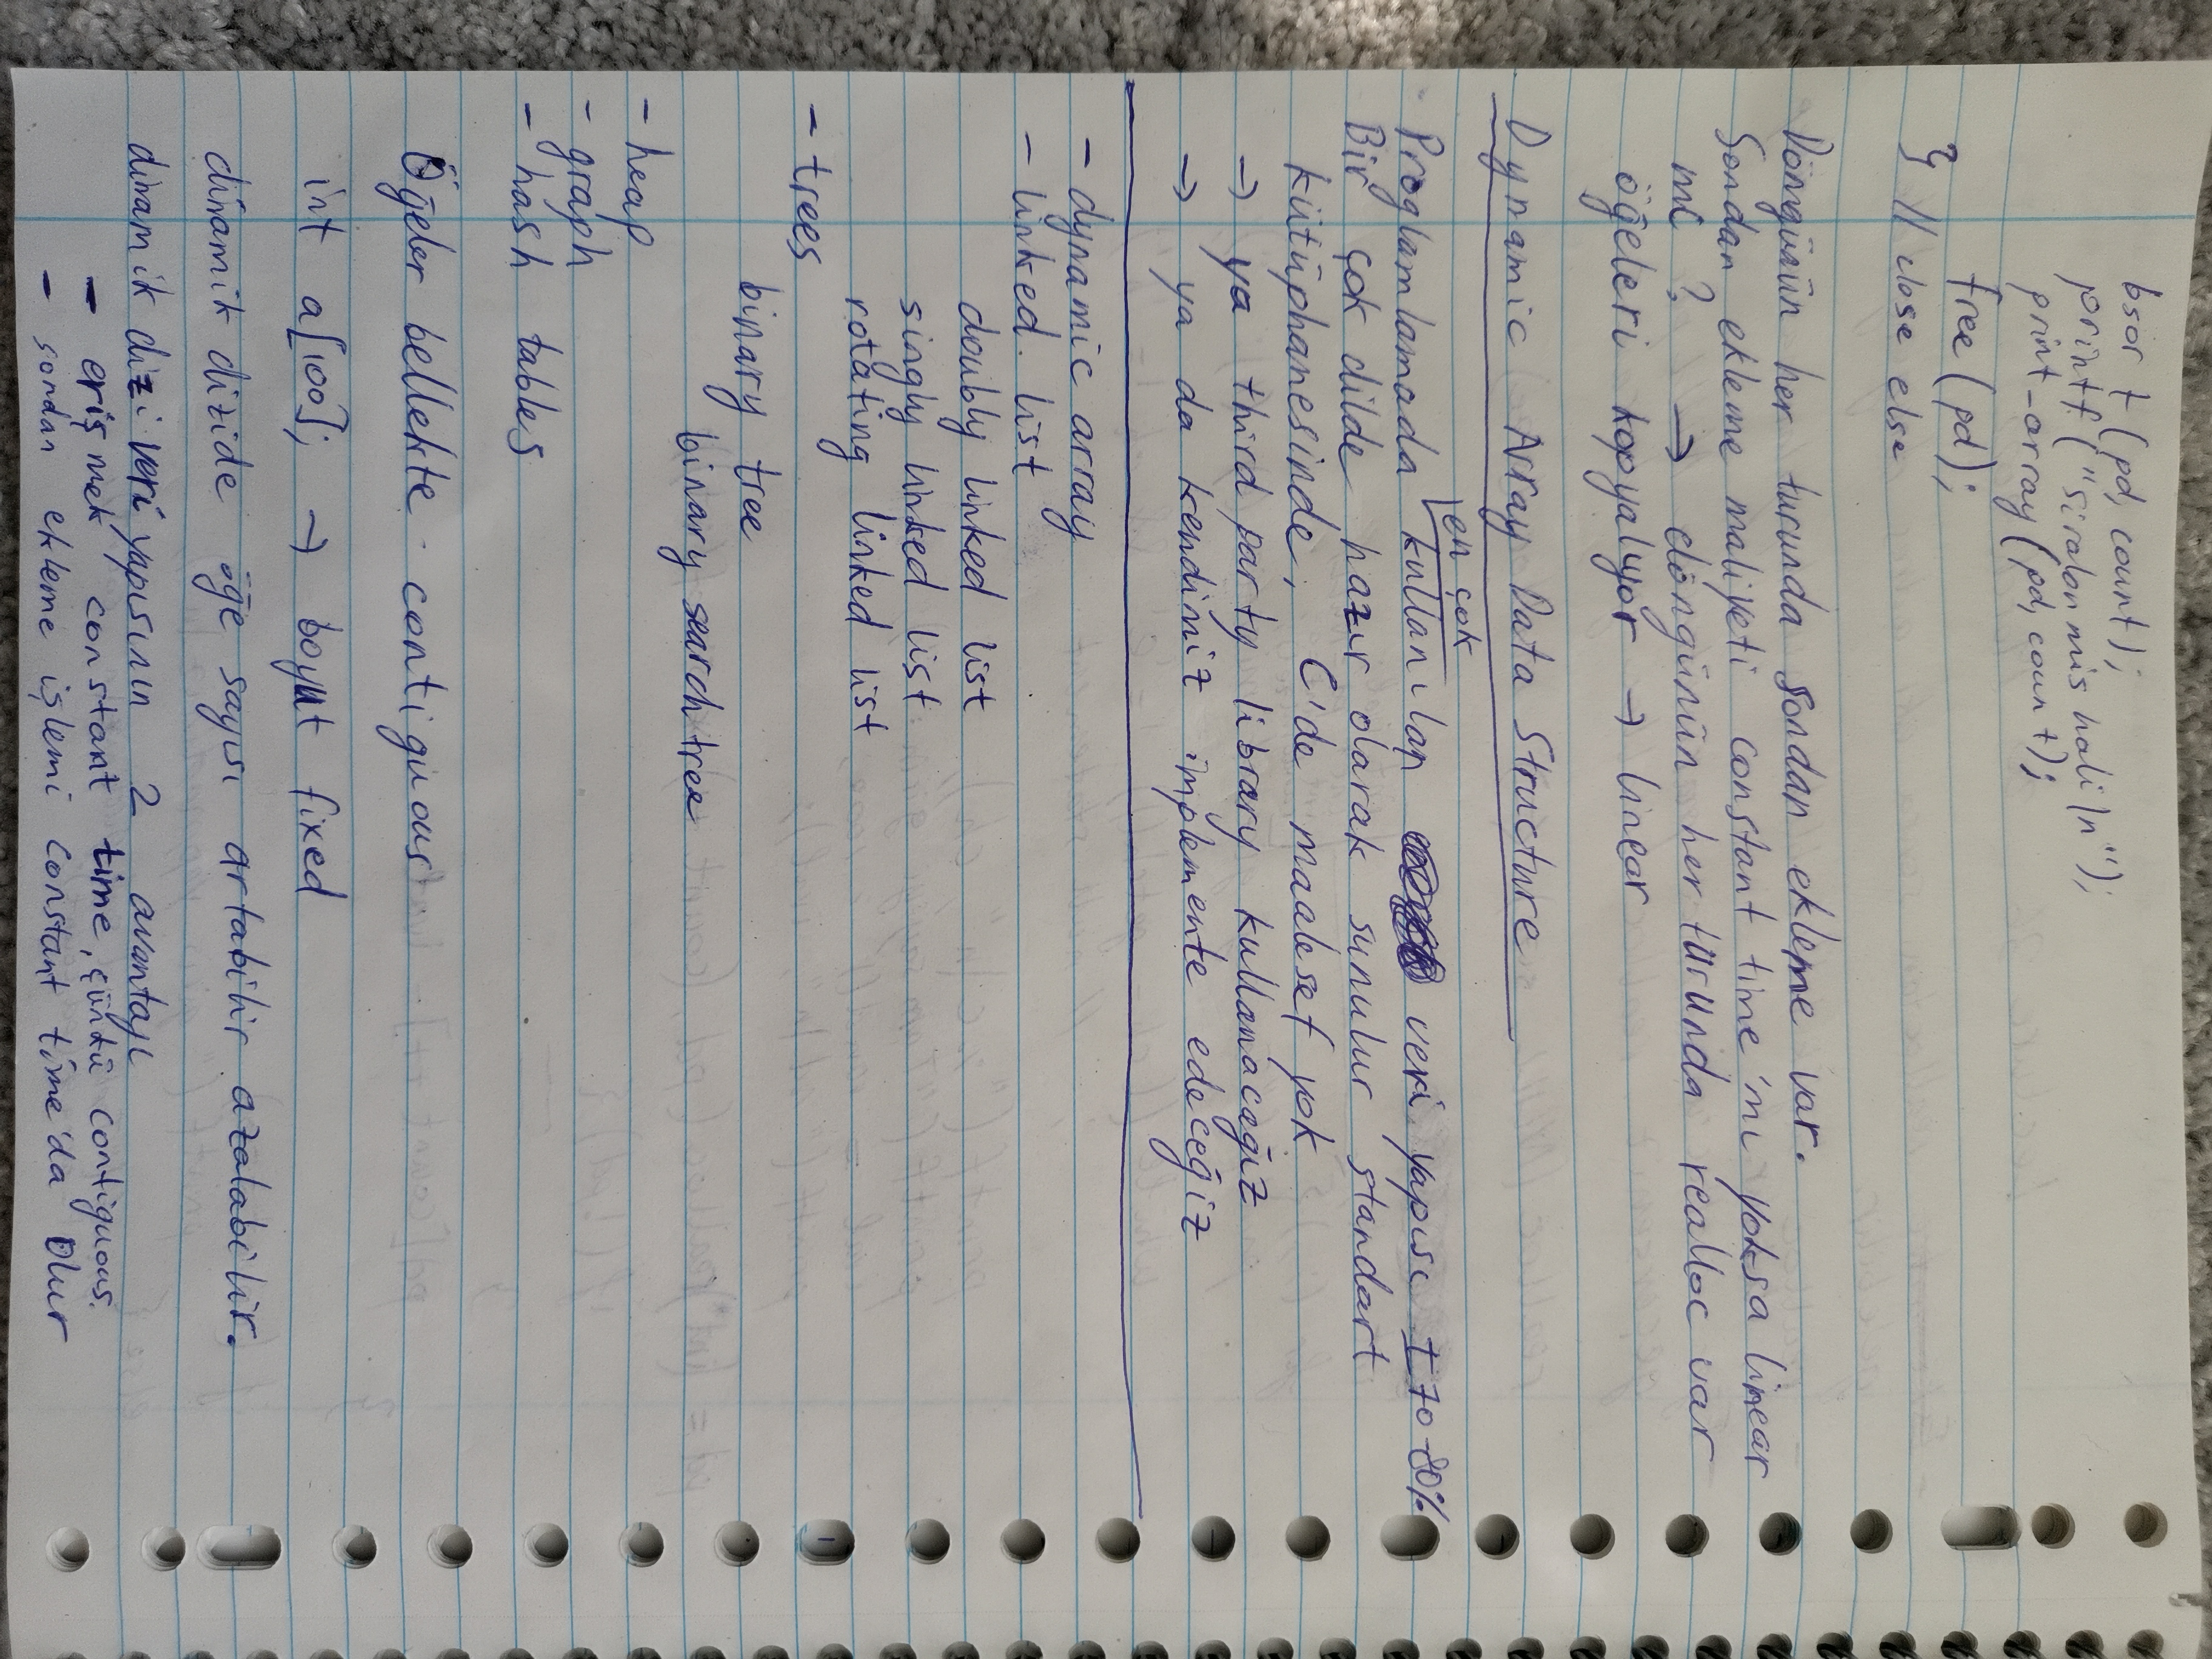 bsort (pd, count);
printf ("siralanmis hali \n");
print_array (pd, count);
free (pd);
} // close else
Döngünün her turunda sondan ekleme var.
Sondan ekleme maliyeti constant time'mı yoksa linear
mi ? → döngünün her turunda realloc var
öğeleri kopyalıyor → linear
Dynamic Array Data Structure
en çok
Proglamlamada kullanılan veri yapısı ± 70-80%
Bir çok dilde hazır olarak sunulur standart
kütüphanesinde, C'de maalesef yok
→ ya third party library kullanacağız
→ ya da kendimiz implemente edeceğiz
- dynamic array
- linked list
doubly linked list
singly linked list
rotating linked list
- trees
binary tree
binary search tree
- heap
- graph
- hash tables
Öğeler bellekte contiguous
int a[100]; → boyut fixed
dinamik dizide öğe sayısı artabilir azalabilir.
dinamik dizi veri yapısının 2 avantajı
- erişmek constant time, çünkü contiguous.
- sondan ekleme işlemi constant time'da olur